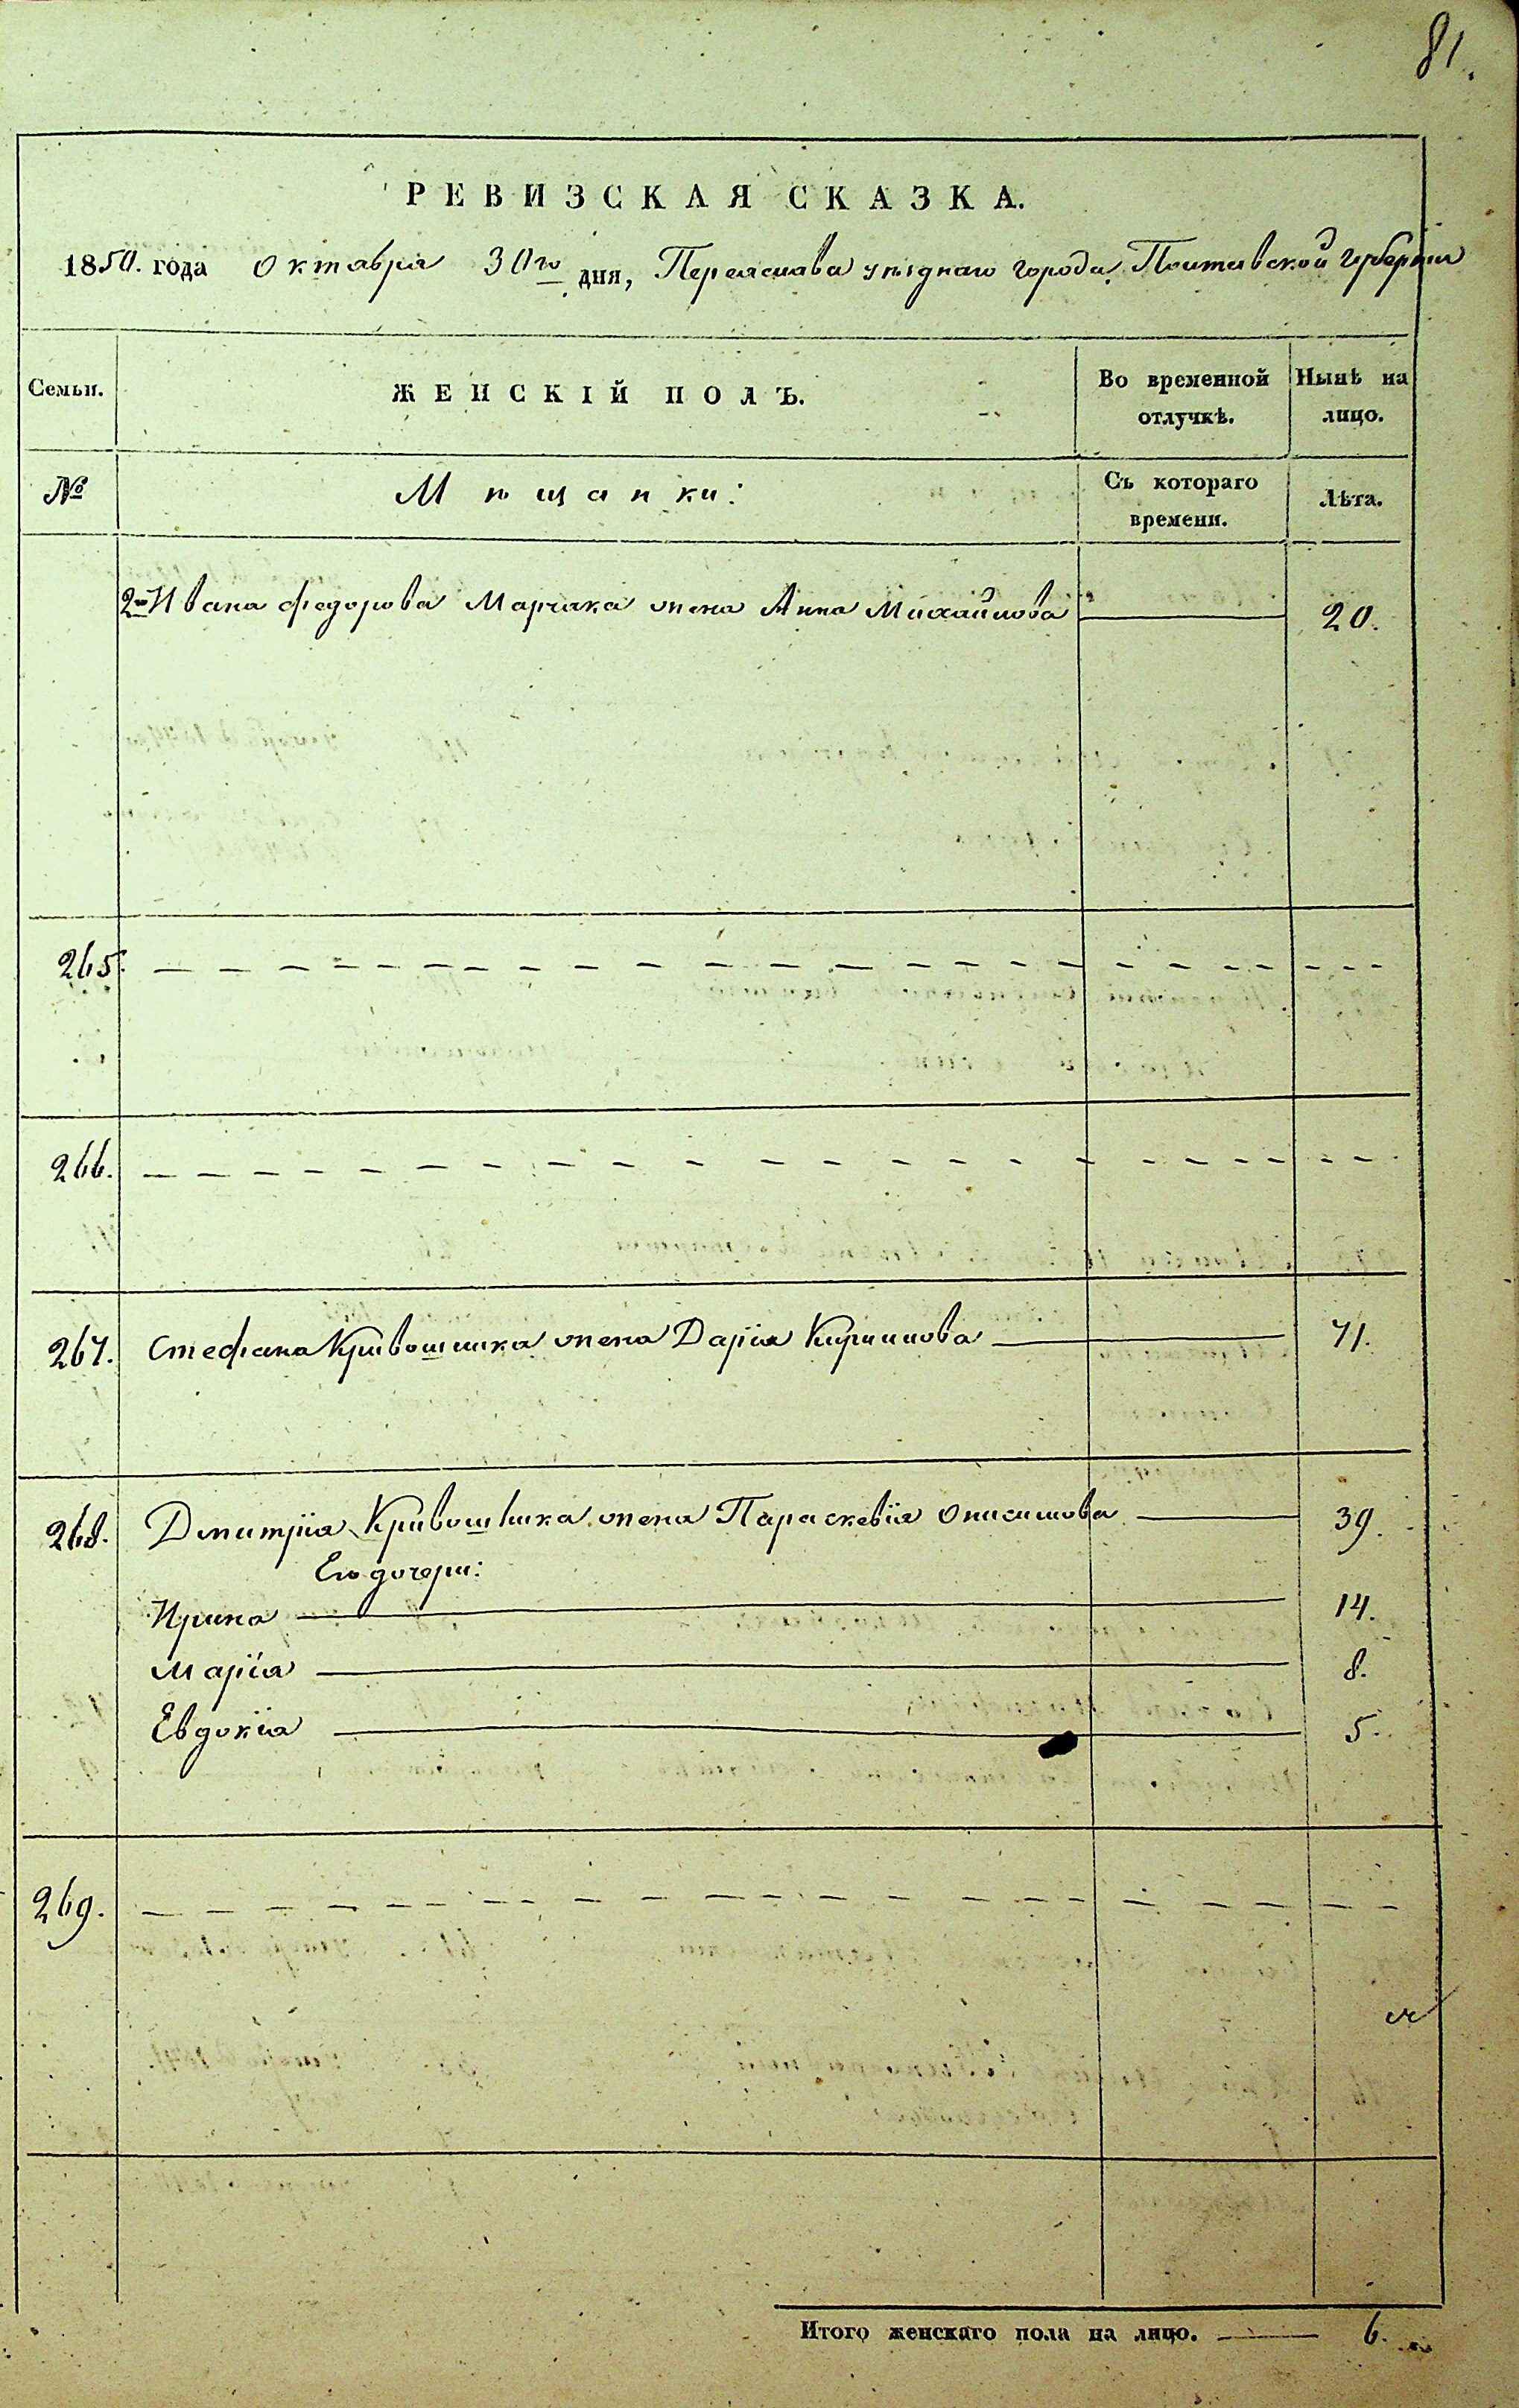 81.
РЕВИЗСКАЯ СКАЗКА.
1850. года Октября 30го дня, Переяслава уѣзднаго города, Полтавской губерніи
Семьи.
ЖЕНСКІЙ ПОЛЪ.
Во временной отлучкѣ.
Нынѣ на лицо.
№
Мѣщанки:
Съ котораго времени.
Лѣта.
2й Ивана Федорова Марчака жена Анна Михайлова 20.
265.
266.
267. Стефана Кривошика жена Дарія Кирилова 71.
268. Дмитрія Кривошика жена Параскевія Онисимова 39.
Его дочери:
Ирина 14.
Марія 8.
Евдокія 5.
269.
Итого женскаго пола на лицо. 6.